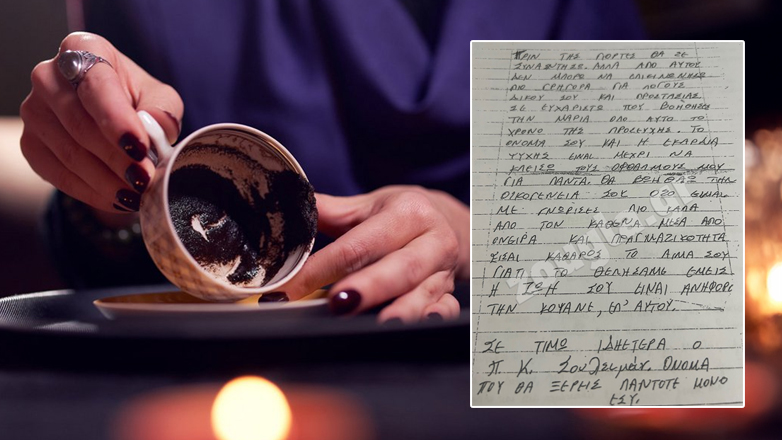 ΠΡΙΝ ΤΗΣ ΓΙΟΡΤΕΣ ΘΑ ΣΕ
ΣΥΝΑΝΤΗΣΩ. ΑΛΛΑ ΑΠΟ ΑΥΤΟΥ
ΔΕΝ ΜΠΟΡΩ ΝΑ
ΠΙΟ ΓΡΗΓΟΡΑ ΓΙΑ ΛΟΓΟΥΣ
ΔΙΚΟΥ ΣΟΥ ΚΑΙ ΠΡΟΣΤΑΣΙΑΣ
ΣΕ ΕΥΧΑΡΙΣΤΩ ΠΟΥ ΒΟΗΘΗΣΕΣ
ΤΗΝ ΜΑΡΙΑ ΟΛΟ ΑΥΤΟ ΤΟ
ΧΡΟΝΟ ΤΗΣ ΠΡΟΣΕΥΧΗΣ. ΤΟ
ΟΝΟΜΑ ΣΟΥ ΚΑΙ Η
ΨΥΧΗΣ ΕΙΝΑΙ ΜΕΧΡΙ ΝΑ
ΚΛΕΙΣΩ ΤΟΥΣ ΟΦΘΑΛΜΟΥΣ ΜΟΥ
ΓΙΑ ΠΑΝΤΑ. ΘΑ ΤΗΝ
ΟΙΚΟΓΕΝΕΙΑ ΣΟΥ ΟΣΟ ΕΙΜΑΙ.
ΜΕ ΓΝΩΡΙΣΕΣ ΠΙΟ ΚΑΛΑ
ΑΠΟ ΤΟΝ ΚΑΘΕΝΑ ΜΕΣΑ ΑΠΟ
ΟΝΕΙΡΑ ΚΑΙ ΠΡΑΓΜΑΖΙΚΟΤΗΤΑ
ΕΙΣΑΙ ΚΑΘΑΡΟΣ ΤΟ ΑΙΜΑ ΣΟΥ
ΓΙΑΤΙ ΤΟ ΘΕΛΗΣΑΜΕ ΕΜΕΙΣ
Η ΖΩΗ ΣΟΥ ΕΙΝΑΙ ΑΝΗΦΟΡΟΣ
ΤΗΝ ΚΟΥΑΝΕ, ΕΠ' ΑΥΤΟΥ.
ΣΕ ΤΙΜΩ ΙΔΗΕΤΕΡΑ Ο
Π. Κ. Σουλεϊμάν. ΟΝΟΜΑ
ΠΟΥ ΘΑ ΞΕΡΗΣ ΠΑΝΤΟΤΕ ΜΟΝΟ
ΕΣΥ.
zougla.gr